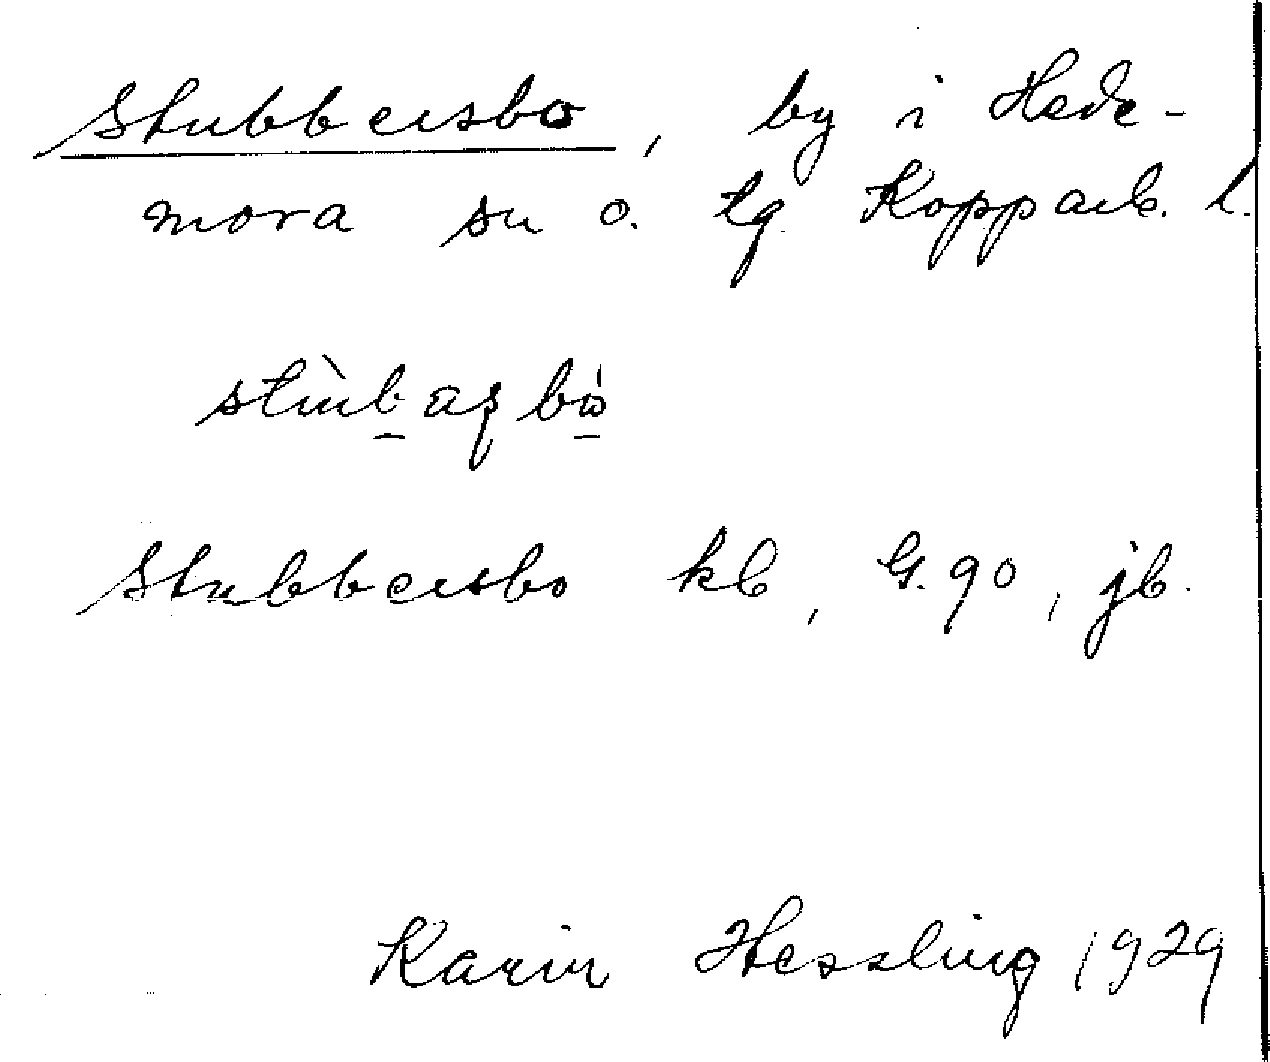 Stubbersbo, by i Hede-
mora sn o. tg Kopparb. l.
stùbaʂbó
Stubbersbo kb, G.90, jb.
Karin Hessling 1929